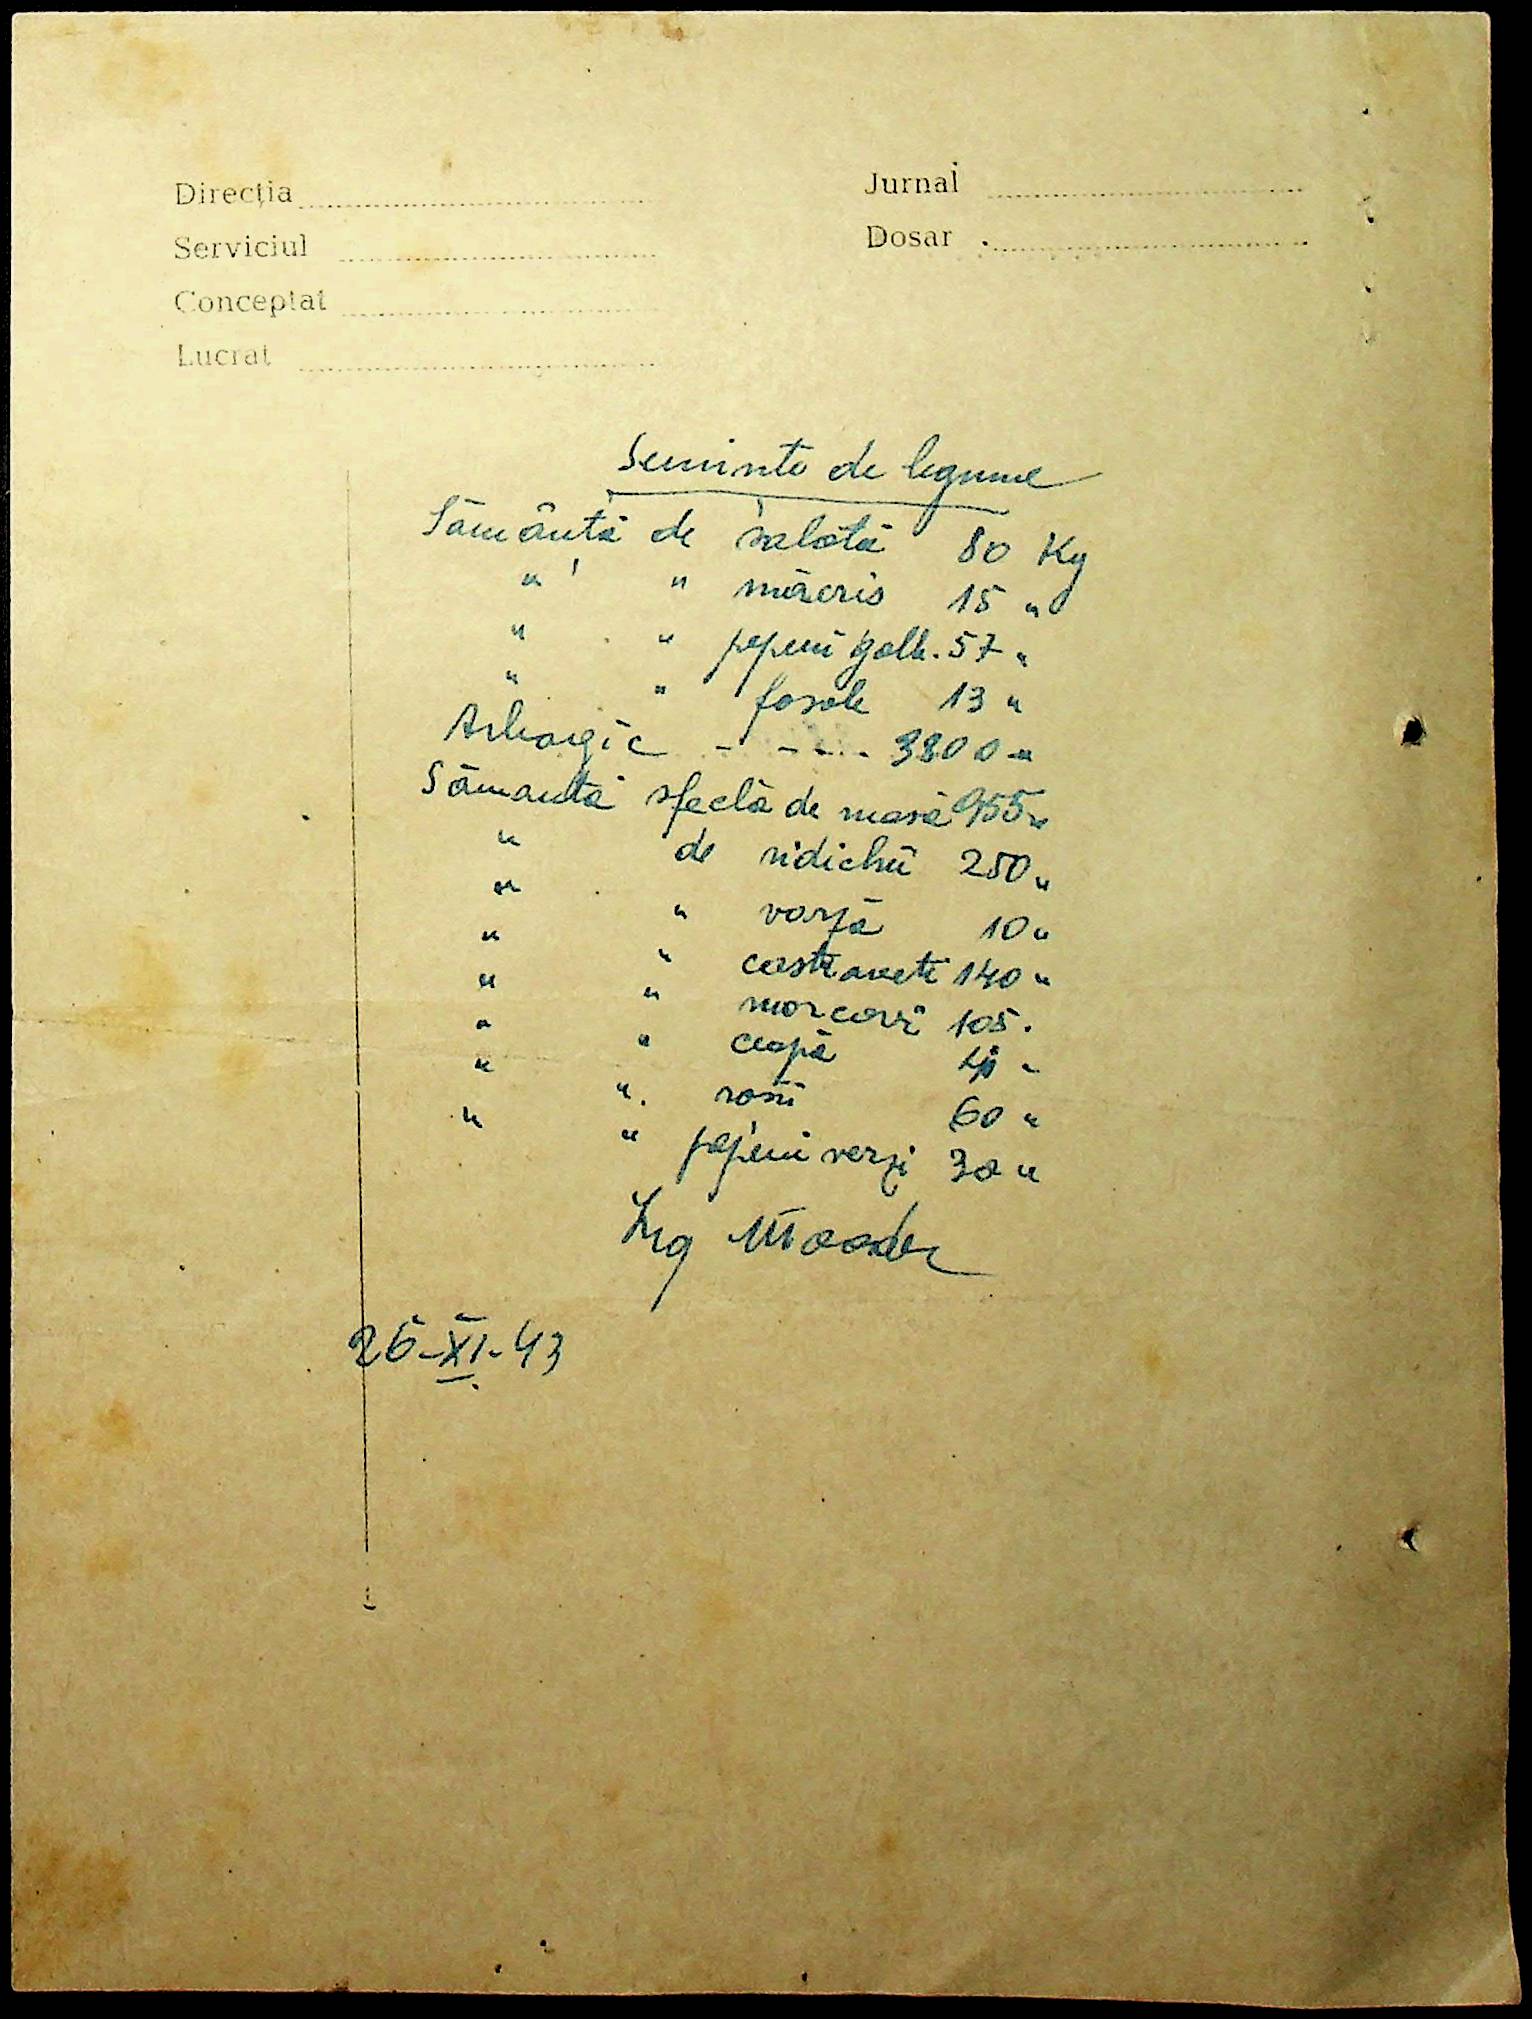 Direcția
Serviciul
Conceptat
Lucrat
Jurnal
Dosar
Seminte de legume
Sămânță de salată 80 Kg
" " măcris 15 "
" " pepeni galb. 57 "
" " fasole 13 "
Arbagic - - - - . 3800 "
Sămanta sfeclă de masă 955 "
" de ridichii 250 "
" " varză 10 "
" " castraveti 140 "
" " morcovi 105 .
" " ceapă "
" " rosii 60 "
" " pepeni verzi 30 "
Ing
26-XI-43